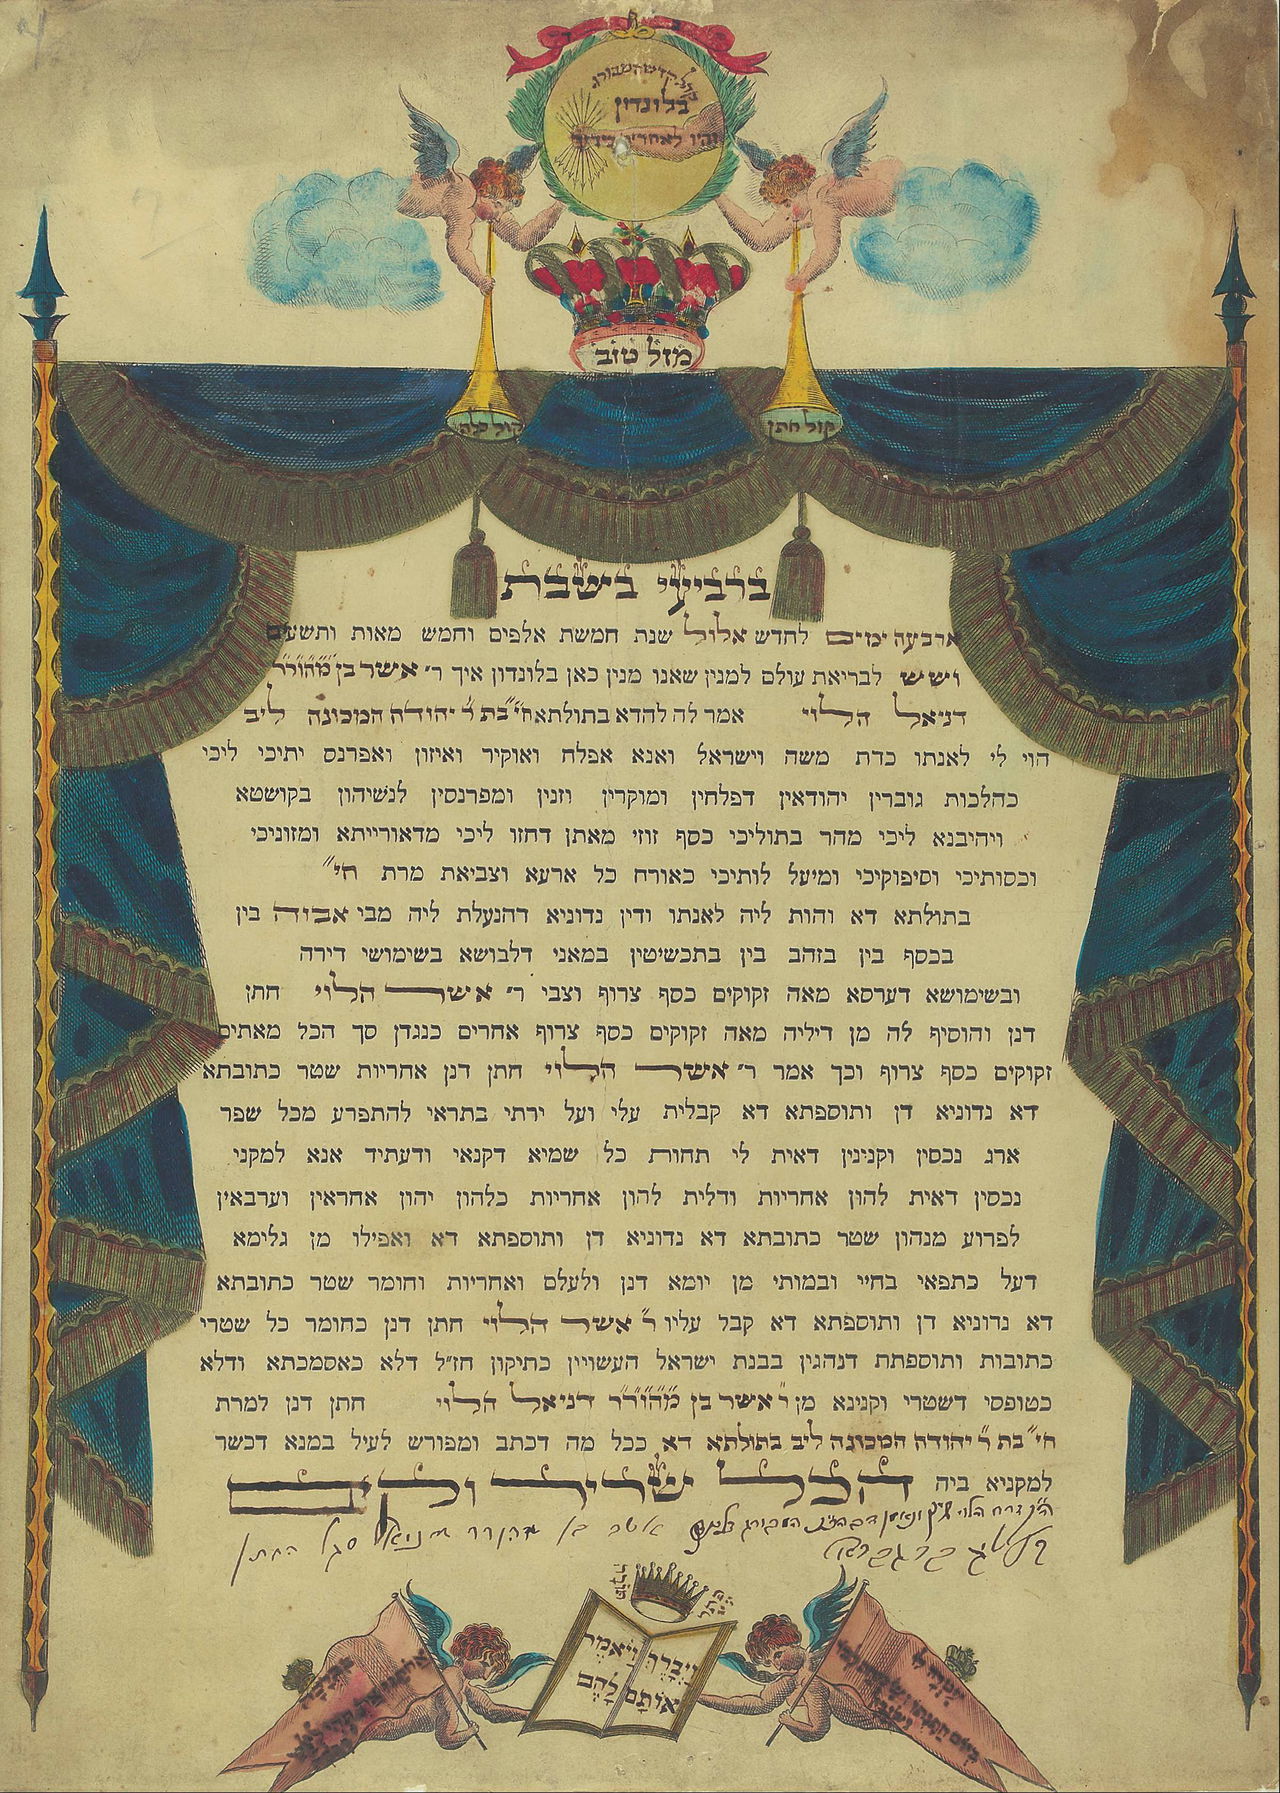 בלונדון
מזל טוב
קול חתן
קול כלה
ברביעי בשבת
ארבעה ימים לחדש אלול שנת חמשת אלפים וחמש מאות ותשעים
ושש לבריאת עולם למנין שאנו מנין כאן בלונדון איך ר׳ אשר בן מהור״ר
דניאל הלוי אמר לה להדא בתולתא חי״ בת ר׳ יהודה המכונה ליב
הוי לי לאנתו כדת משה וישראל ואנא אפלח ואוקיר ואיזון ואפרנס יתיכי ליכי
כהלכות גוברין יהודאין דפלחין ומוקרין וזנין ומפרנסין לנשיהון בקושטא
ויהיבנא ליכי מהר בתוליכי כסף זוזי מאתן דחזו ליכי מדאורייתא ומזוניכי
וכסותיכי וסיפוקיכי ומיעל לותיכי כאורח כל ארעא וצביאת מרת חי״
בתולתא דא והות ליה לאנתו ודין נדוניא דהנעלת ליה מבי אביה בין
בכסף בין בזהב בין בתכשיטין במאני דלבושא בשימושי דירה
ובשימושא דערסא מאה זקוקים כסף צרוף וצבי ר׳ אשר הלוי חתן
דנן והוסיף לה מן דיליה מאה זקוקים כסף צרוף אחרים כנגדן סך הכל מאתים
זקוקים כסף צרוף וכך אמר ר׳ אשר הלוי חתן דנן אחריות שטר כתובתא
דא נדוניא דן ותוספתא דא קבלית עלי ועל ירתי בתראי להתפרע מכל שפר
ארג נכסין וקנינין דאית לי תחות כל שמיא דקנאי ודעתיד אנא למקני
נכסין דאית להון אחריות ודלית להון אחריות כלהון יהון אחראין וערבאין
לפרוע מנהון שטר כתובתא דא נדוניא דן ותוספתא דא ואפילו מן גלימא
דעל כתפאי בחיי ובמותי מן יומא דנן ולעלם ואחריות וחומר שטר כתובתא
דא נדוניא דן ותוספתא דא קבל עליו ר׳ אשר הלוי חתן דנן כחומר כל שטרי
כתובות ותוספתת דנהגין בבנת ישראל העשויין כתיקון חז״ל דלא כאסמכתא ודלא
כטופסי דשטרי וקנינא מן ר׳ אשר בן מהור״ר דניאל הלוי חתן דנן למרת
חי״ בת ר׳ יהודה המכונה ליב בתולתא דא ככל מה דכתב ומפורש לעיל במנא דכשר
למקניא ביה הכל שריר וקים
אשר בן סגל החתן
ויברך
אותם
ויאמר
להם